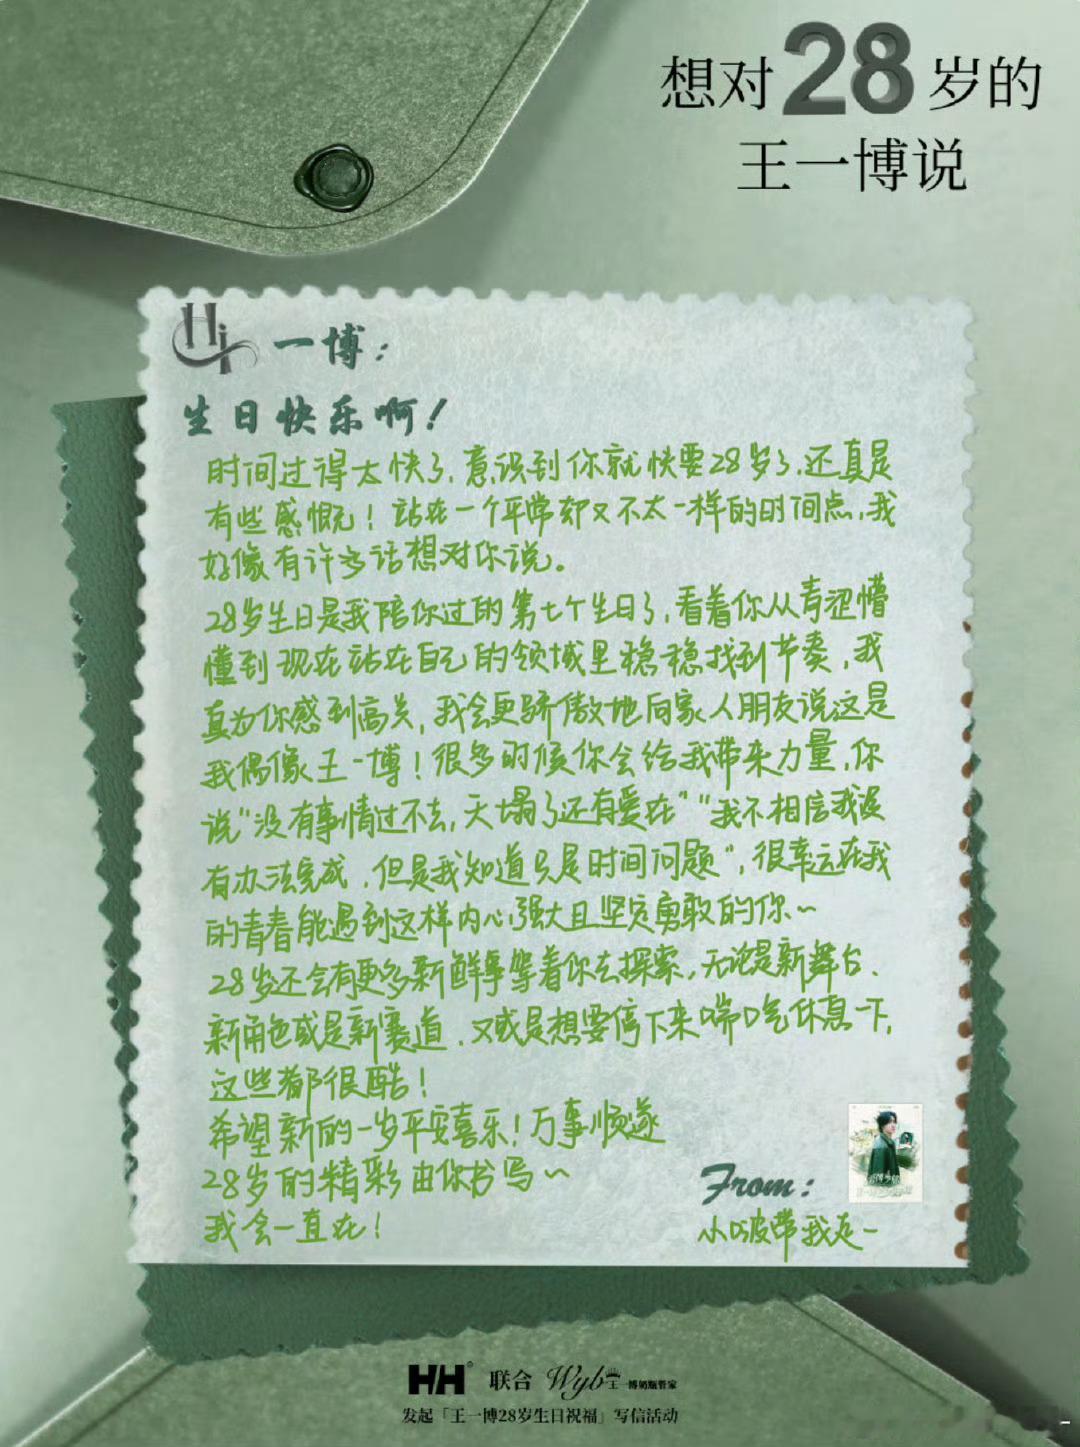 想对28岁的
王一博说
Hi 一博：
生日快乐啊！
时间过得太快了，意识到你就快要28岁了，还真是
有些感慨！站在一个平常却又不太一样的时间点，我
好像有许多话想对你说。
28岁生日是我陪你过的第七个生日了，看着你从青涩懵
懂到现在站在自己的领域里稳稳找到节奏，我
真为你感到高兴，我会更骄傲地向家人朋友说这是
我偶像王一博！很多时候你会给我带来力量，你
说“没有事情过不去，天塌了还有爱在”“我不相信我没
有办法完成，但是我知道只是时间问题”，很幸运在我
的青春能遇到这样内心强大且坚定勇敢的你~
28岁还会有更多新鲜事等着你去探索，无论是新舞台、
新角色或是新赛道，又或是想要停下来喘口气休息一下，
这些都很酷！
希望新的一岁平安喜乐！万事顺遂
28岁的精彩由你书写~
我会一直在！
From:
小啵带我走一
HH® 联合 Wyb 王一博奶瓶管家
发起「王一博28岁生日祝福」写信活动